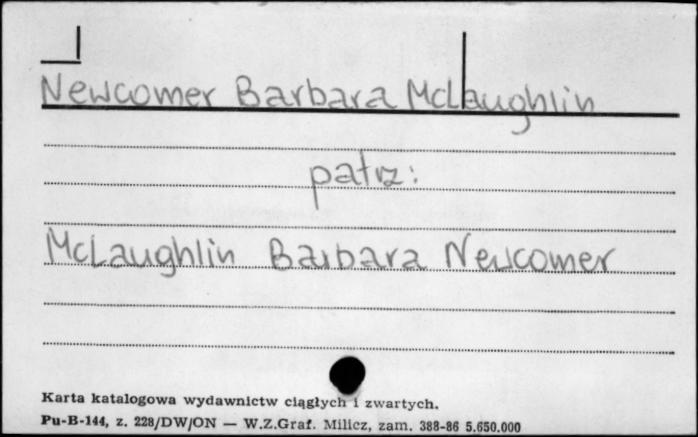 Newcomer Barbara McLaughlin
patrz:
McLaughlin Barbara Newcomer
Karta katalogowa wydawnictw ciągłych i zwartych.
Pu-B-144, z. 228/DW/ON — W.Z.Graf. Milicz, zam. 388-86 5.650.000